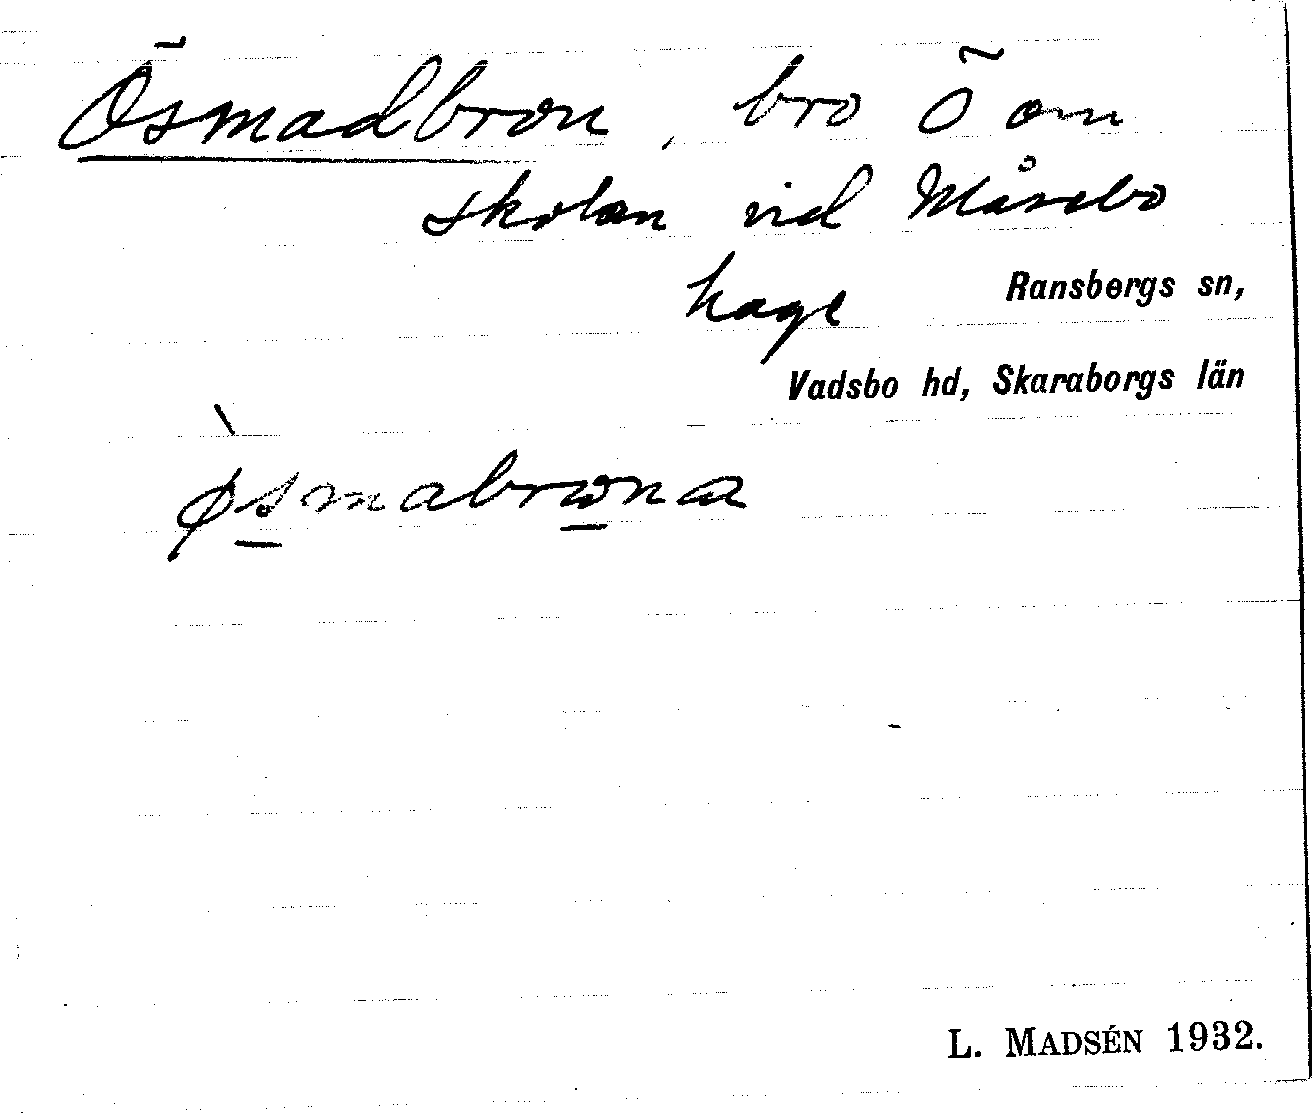 Ösmadbron, bro Ö om
skolan vid Måsebo
hage
Ransbergs sn,
Vadsbo hd, Skaraborgs län
ø̀smabrωna
L. MADSÉN 1932.